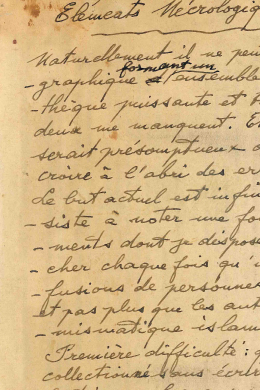 Elémeats Nécrologiq
Naturellement il ne peu
formant un
-graphique d'ensemble
-thèque puissante et t
deux me manquent. E
serait présomptueux d
croire à l'abri des er
Le but actuel est infin
-siste à noter une fo
-ments dont je dispos
-cher chaque fois qu'
-fusions de personne
et pas plus que les aut
-mismatique islam
Première difficulté: q
collectionné sans écrir